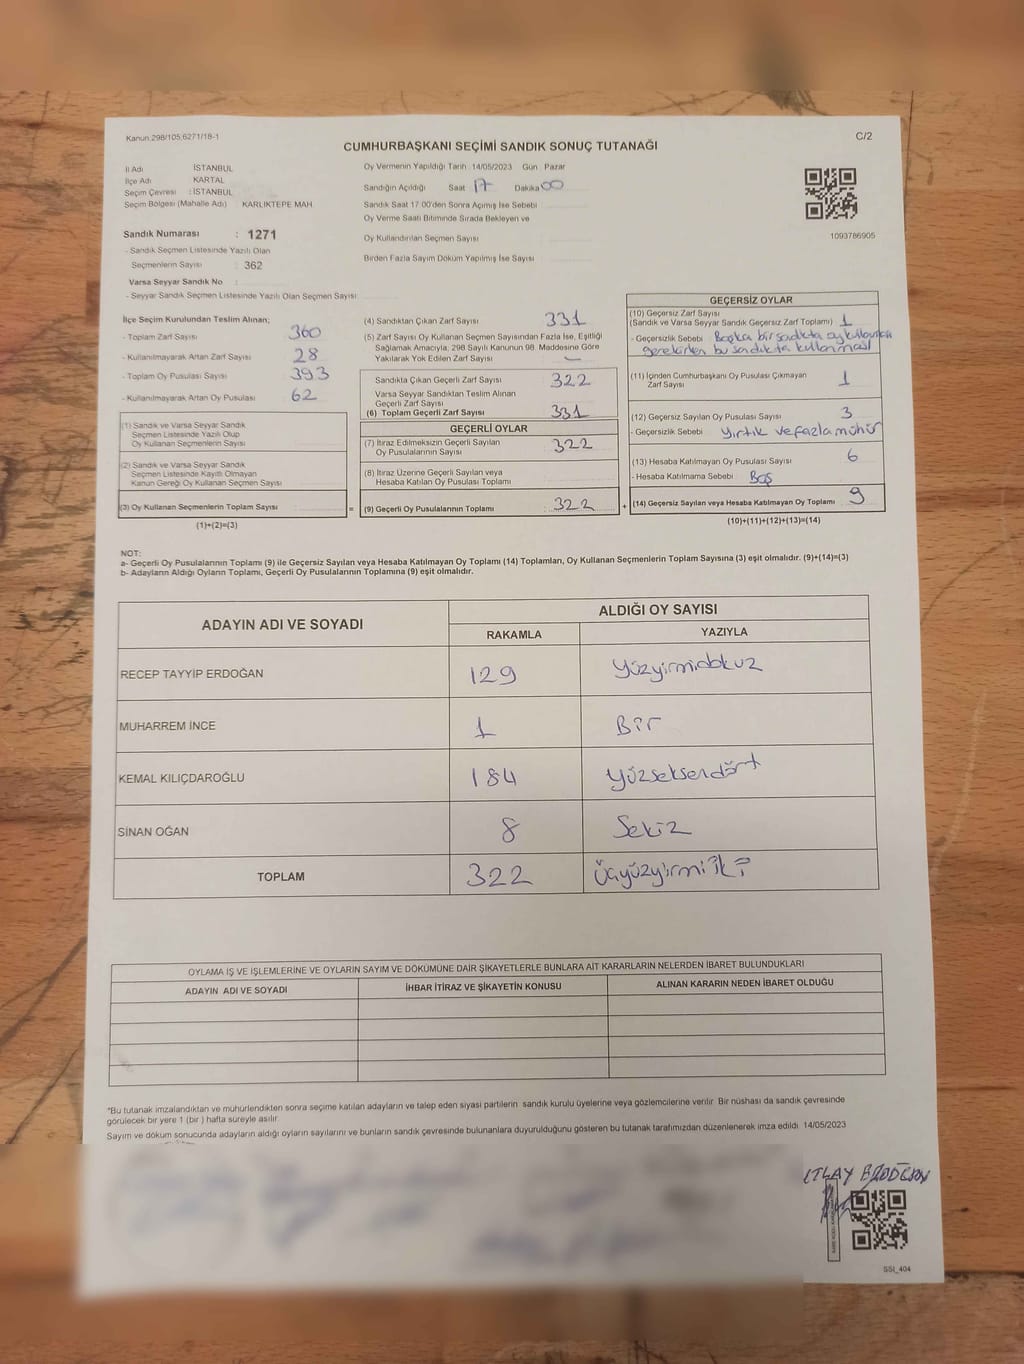 Kanun 298/105,6271/18-1
C/2
CUMHURBAŞKANI SEÇİMİ SANDIK SONUÇ TUTANAĞI
İl Adı İSTANBUL
İlçe Adı KARTAL
Seçim Çevresi : İSTANBUL
Seçim Bölgesi (Mahalle Adı) KARLIKTEPE MAH
Sandık Numarası : 1271
- Sandık Seçmen Listesinde Yazılı Olan
Seçmenlerin Sayısı : 362
Varsa Seyyar Sandık No :
- Seyyar Sandık Seçmen Listesinde Yazılı Olan Seçmen Sayısı
Oy Vermenin Yapıldığı Tarih 14/05/2023 Gün Pazar
Sandığın Açıldığı Saat 17 Dakika 00
Sandık Saat 17 00'den Sonra Açımış İse Sebebi
Oy Verme Saati Bitiminde Sırada Bekleyen ve
Oy Kullandırılan Seçmen Sayısı
Birden Fazla Sayım Döküm Yapılmış İse Sayısı
1093786905
İlçe Seçim Kurulundan Teslim Alınan;
- Toplam Zarf Sayısı 360
- Kullanılmayarak Artan Zarf Sayısı 28
- Toplam Oy Pusulası Sayısı 393
- Kullanılmayarak Artan Oy Pusulası 62
(1) Sandık ve Varsa Seyyar Sandık
Seçmen Listesinde Yazılı Olup
Oy Kullanan Seçmenlerin Sayısı
(2) Sandık ve Varsa Seyyar Sandık
Seçmen Listesinde Kayıtlı Olmayan
Kanun Gereği Oy Kullanan Seçmen Sayısı
(3) Oy Kullanan Seçmenlerin Toplam Sayısı =
(1)+(2)=(3)
(4) Sandıktan Çıkan Zarf Sayısı 331
(5) Zarf Sayısı Oy Kullanan Seçmen Sayısından Fazla İse, Eşitliği
Sağlamak Amacıyla, 298 Sayılı Kanunun 98. Maddesine Göre
Yakılarak Yok Edilen Zarf Sayısı —
Sandıkta Çıkan Geçerli Zarf Sayısı 322
Varsa Seyyar Sandıktan Teslim Alınan
Geçerli Zarf Sayısı
(6) Toplam Geçerli Zarf Sayısı 331
GEÇERLİ OYLAR
(7) İtiraz Edilmeksizin Geçerli Sayılan
Oy Pusulalarının Sayısı 322
(8) İtiraz Üzerine Geçerli Sayılan veya
Hesaba Katılan Oy Pusulası Toplamı
(9) Geçerli Oy Pusulalarının Toplamı 322 +
GEÇERSİZ OYLAR
(10) Geçersiz Zarf Sayısı
(Sandık ve Varsa Seyyar Sandık Geçersiz Zarf Toplamı) 1
- Geçersizlik Sebebi Başka bir sandıkta oy kullanması
gerekirken bu sandıkta kullanması
(11) İçinden Cumhurbaşkanı Oy Pusulası Çıkmayan
Zarf Sayısı 1
(12) Geçersiz Sayılan Oy Pusulası Sayısı 3
- Geçersizlik Sebebi Yırtık ve fazla mühür
(13) Hesaba Katılmayan Oy Pusulası Sayısı 6
- Hesaba Katılmama Sebebi Boş
(14) Geçersiz Sayılan veya Hesaba Katılmayan Oy Toplamı 9
(10)+(11)+(12)+(13)=(14)
NOT:
a- Geçerli Oy Pusulalarının Toplamı (9) ile Geçersiz Sayılan veya Hesaba Katılmayan Oy Toplamı (14) Toplamları, Oy Kullanan Seçmenlerin Toplam Sayısına (3) eşit olmalıdır. (9)+(14)=(3)
b- Adayların Aldığı Oyların Toplamı, Geçerli Oy Pusulalarının Toplamına (9) eşit olmalıdır.
ADAYIN ADI VE SOYADI
ALDIĞI OY SAYISI
RAKAMLA YAZIYLA
RECEP TAYYİP ERDOĞAN 129 Yüzyirmidokuz
MUHARREM İNCE 1 Bir
KEMAL KILIÇDAROĞLU 184 Yüzseksendört
SİNAN OĞAN 8 Sekiz
TOPLAM 322 Üçyüzyirmiiki
OYLAMA İŞ VE İŞLEMLERİNE VE OYLARIN SAYIM VE DÖKÜMÜNE DAİR ŞİKAYETLERLE BUNLARA AİT KARARLARIN NELERDEN İBARET BULUNDUKLARI
ADAYIN ADI VE SOYADI İHBAR İTİRAZ VE ŞİKAYETİN KONUSU ALINAN KARARIN NEDEN İBARET OLDUĞU
*Bu tutanak imzalandıktan ve mühürlendikten sonra seçime katılan adayların ve talep eden siyasi partilerin sandık kurulu üyelerine veya gözlemcilerine verilir. Bir nüshası da sandık çevresinde
görülecek bir yere 1 (bir ) hafta süreyle asılır
Sayım ve döküm sonucunda adayların aldığı oyların sayılarını ve bunların sandık çevresinde bulunanlara duyurulduğunu gösteren bu tutanak tarafımızdan düzenlenerek imza edildi. 14/05/2023
SSI_404